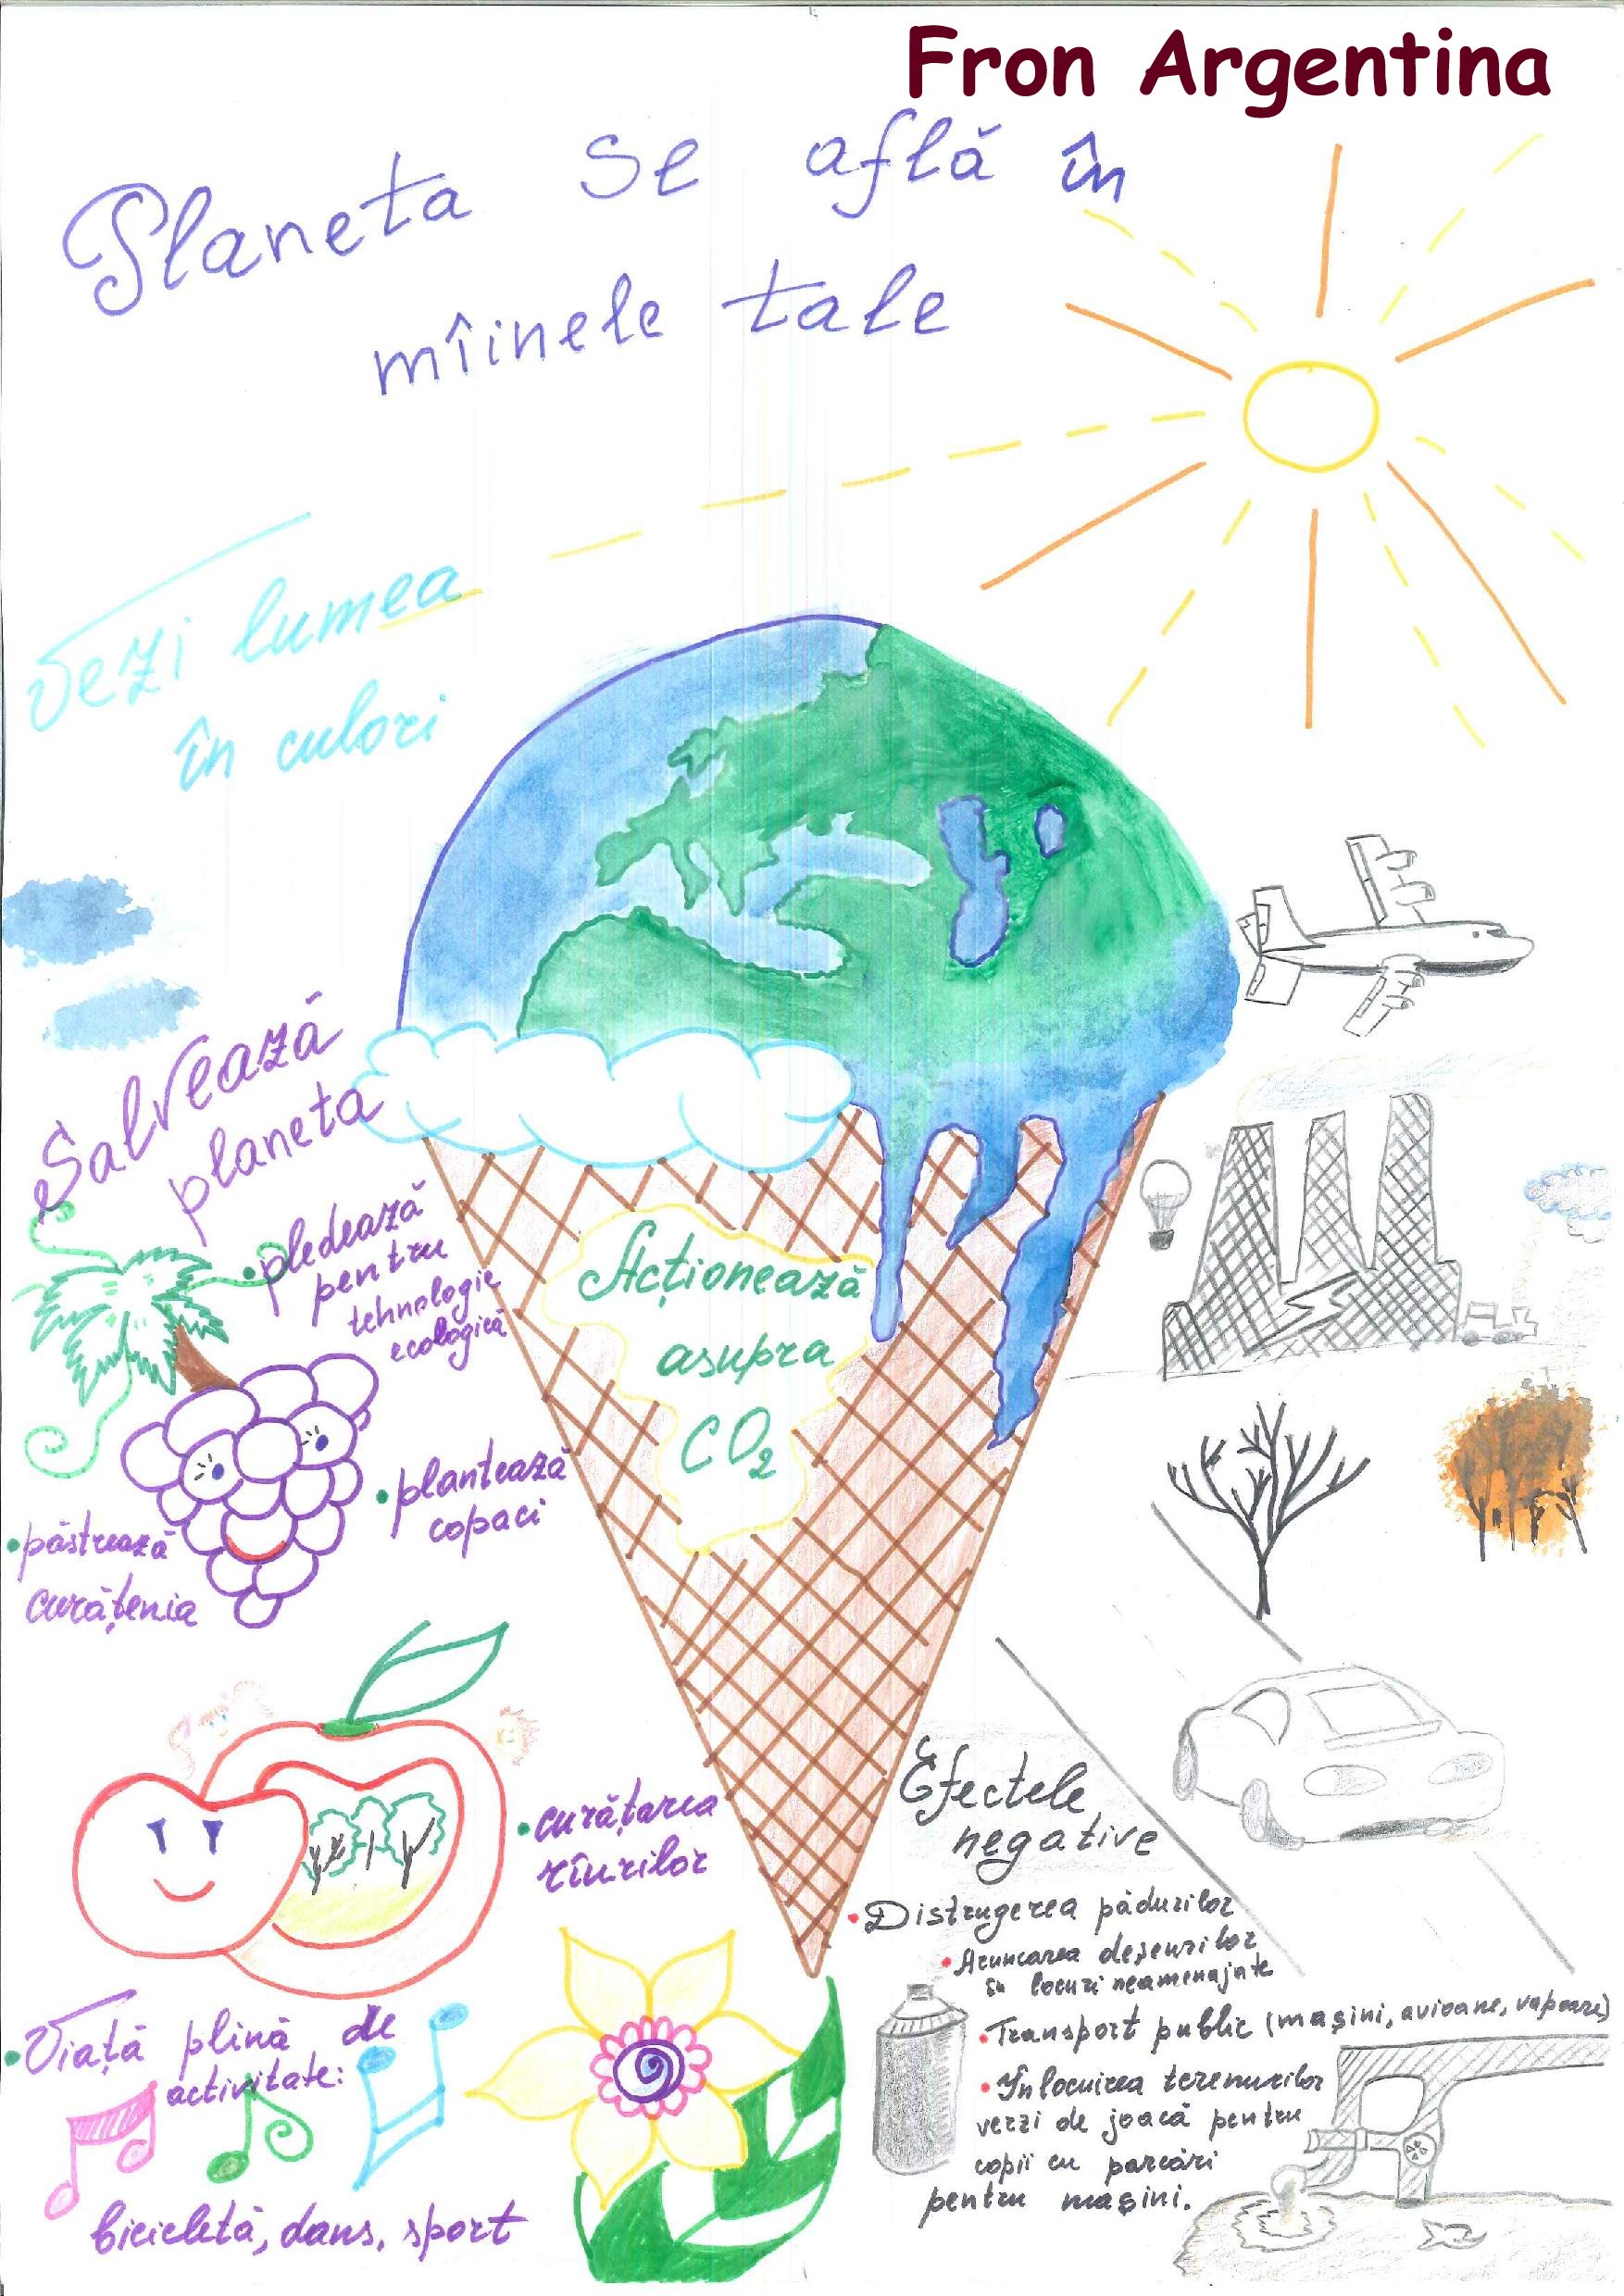 Fron Argentina
Planeta se află în
mîinele tale
Vezi lumea
în culori
Salvează
planeta
• pledează
pentru
tehnologie
ecologică
Acționează
asupra
CO2
• plantează
copaci
• păstrează
curățenia
• curățarea
rîurilor
Efectele
negative
• Distrugerea pădurilor
• Aruncarea deșeurilor
în locuri neamenajate
• Transport public (mașini, avioane, vapoare)
• Înlocuirea terenurilor
verzi de joacă pentru
copii cu parcări
pentru mașini.
• Viață plină de
activitate:
bicicletă, dans, sport